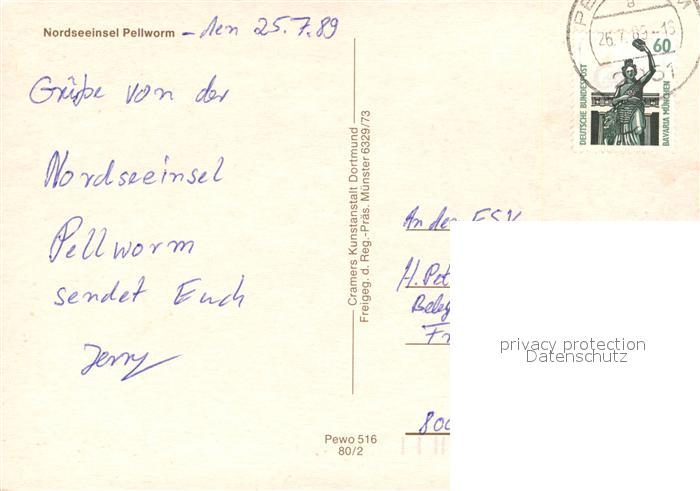 Nordseeinsel Pellworm – den 25.7.89
Grüße von der
Nordseeinsel
Pellworm
sendet Euch
Jerry
Cramers Kunstanstalt Dortmund
Freigeg. d. Reg.-Präs. Münster 6329/73
Pewo 516
80/2
26.7.89-18
60
DEUTSCHE BUNDESPOST
BAVARIA MÜNCHEN
An den ESV
H. Pet
Beleg
Fr
800
privacy protection
Datenschutz